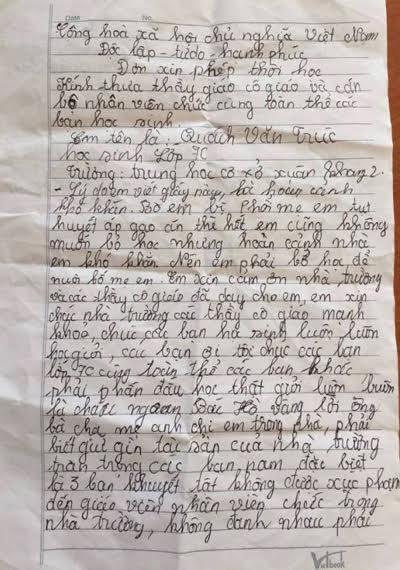 Date No.
Cộng hoà xã hội chủ nghĩa Việt Nam
Độc lập - tự do - hanh phúc
Đơn xin phép thôi học
Kính thưa thầy giáo cô giáo và cán
bộ nhân viên chức cùng toàn thể các
bạn học sinh
Em tên là: Quách Văn Trúc
học sinh Lớp 7C
Trường: trung học cơ xở xuân phang 2.
- Lý do em viết giấy này, là hoàn cảnh
khó khăn. Bố em bị Phổi mẹ em tụt
huyết áp gạo ăn thì hết em cũng không
muốn bỏ học nhưng hoàn cảnh nhà
em khó khăn. Nên em phải bỏ học để
nuôi bố mẹ em. Em xin cảm ơn nhà trường
và các thầy cô giáo đã dạy cho em, em xin
chúc nhà trường các thầy cô giáo mạnh
khoẻ, chúc các bạn học sinh luôn luôn
học giỏi, các bạn ơi tớ chúc các bạn
lớp 7C cùng toàn thể các bạn khác
phải phấn đấu học thật giỏi luôn luôn
là cháu ngoan Bác Hồ vâng lời ông
bà cha mẹ anh chị em trong nhà, phải
biết giữ gìn tài sản của nhà trường
trân trọng các bạn, nam đặc biệt
là 3 bạn khuyết tật không được xúc phạm
đến giáo viên nhân viên chức trong
nhà trường, không đánh nhau phải
Vietbook